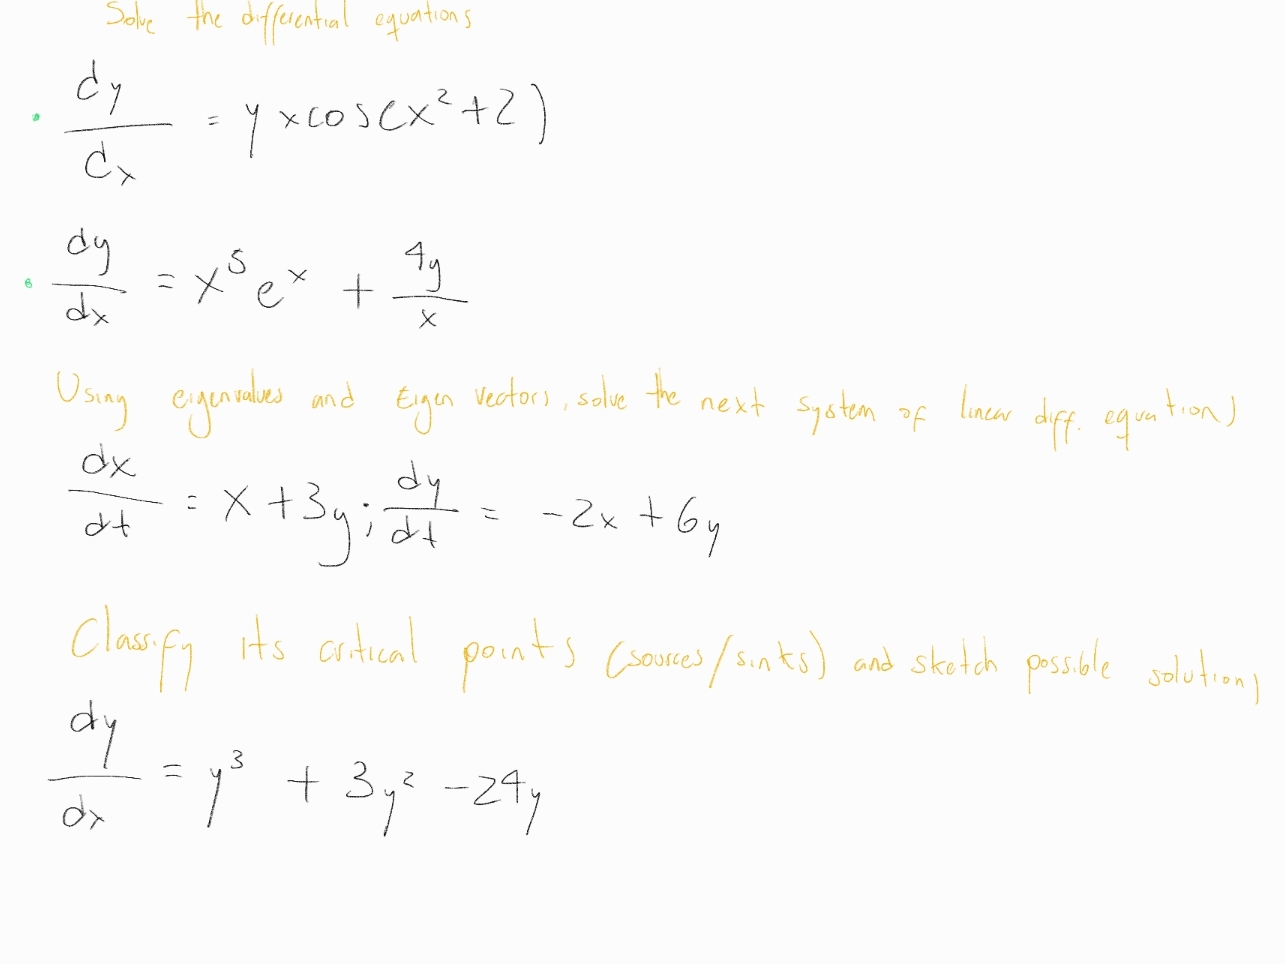 Solve the differential equations
• dy/dx = y x cos(x² + 2)
• dy/dx = x⁵ eˣ + 4y/x
Using eigenvalues and Eigen vectors, solve the next system of linear diff. equations
dx/dt = x + 3y ; dy/dt = -2x + 6y
Classify its critical points (sources/sinks) and sketch possible solutions
dy/dx = y³ + 3y² - 24y